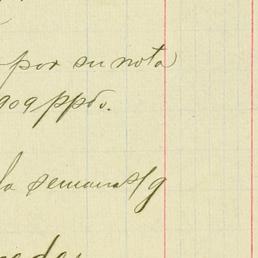 por su nota
909 ppdo.
la semana s/g